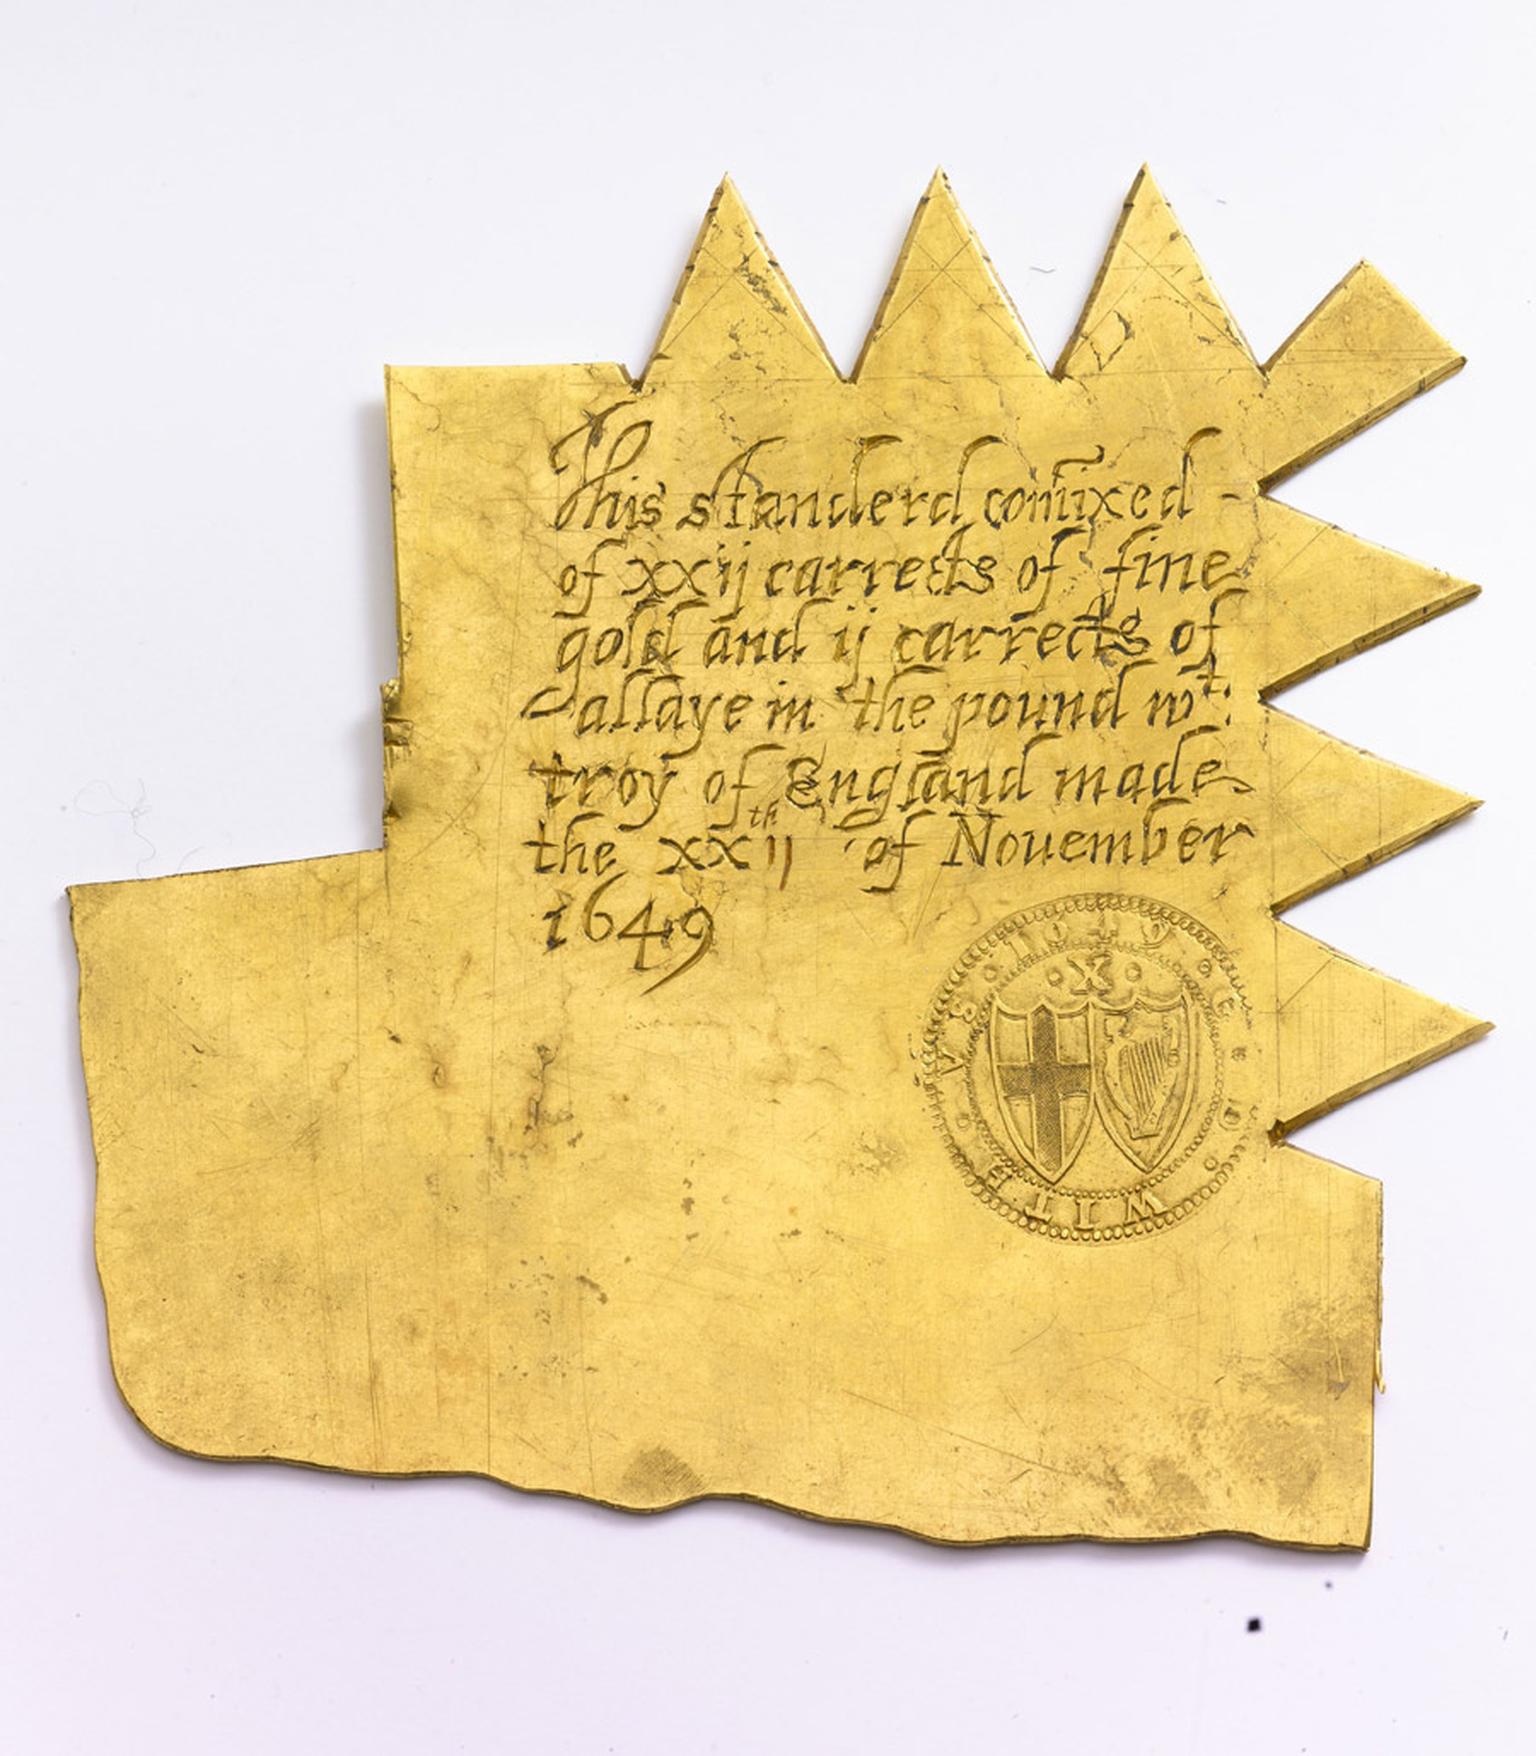 This standerd com̄ixed -
of xxij carrects of fine
gold and ij carrects of
allaye in the pound wt:
troy of England made
the xxijth of Nouember
1649
· 1649 ·
· X ·
WITH VS